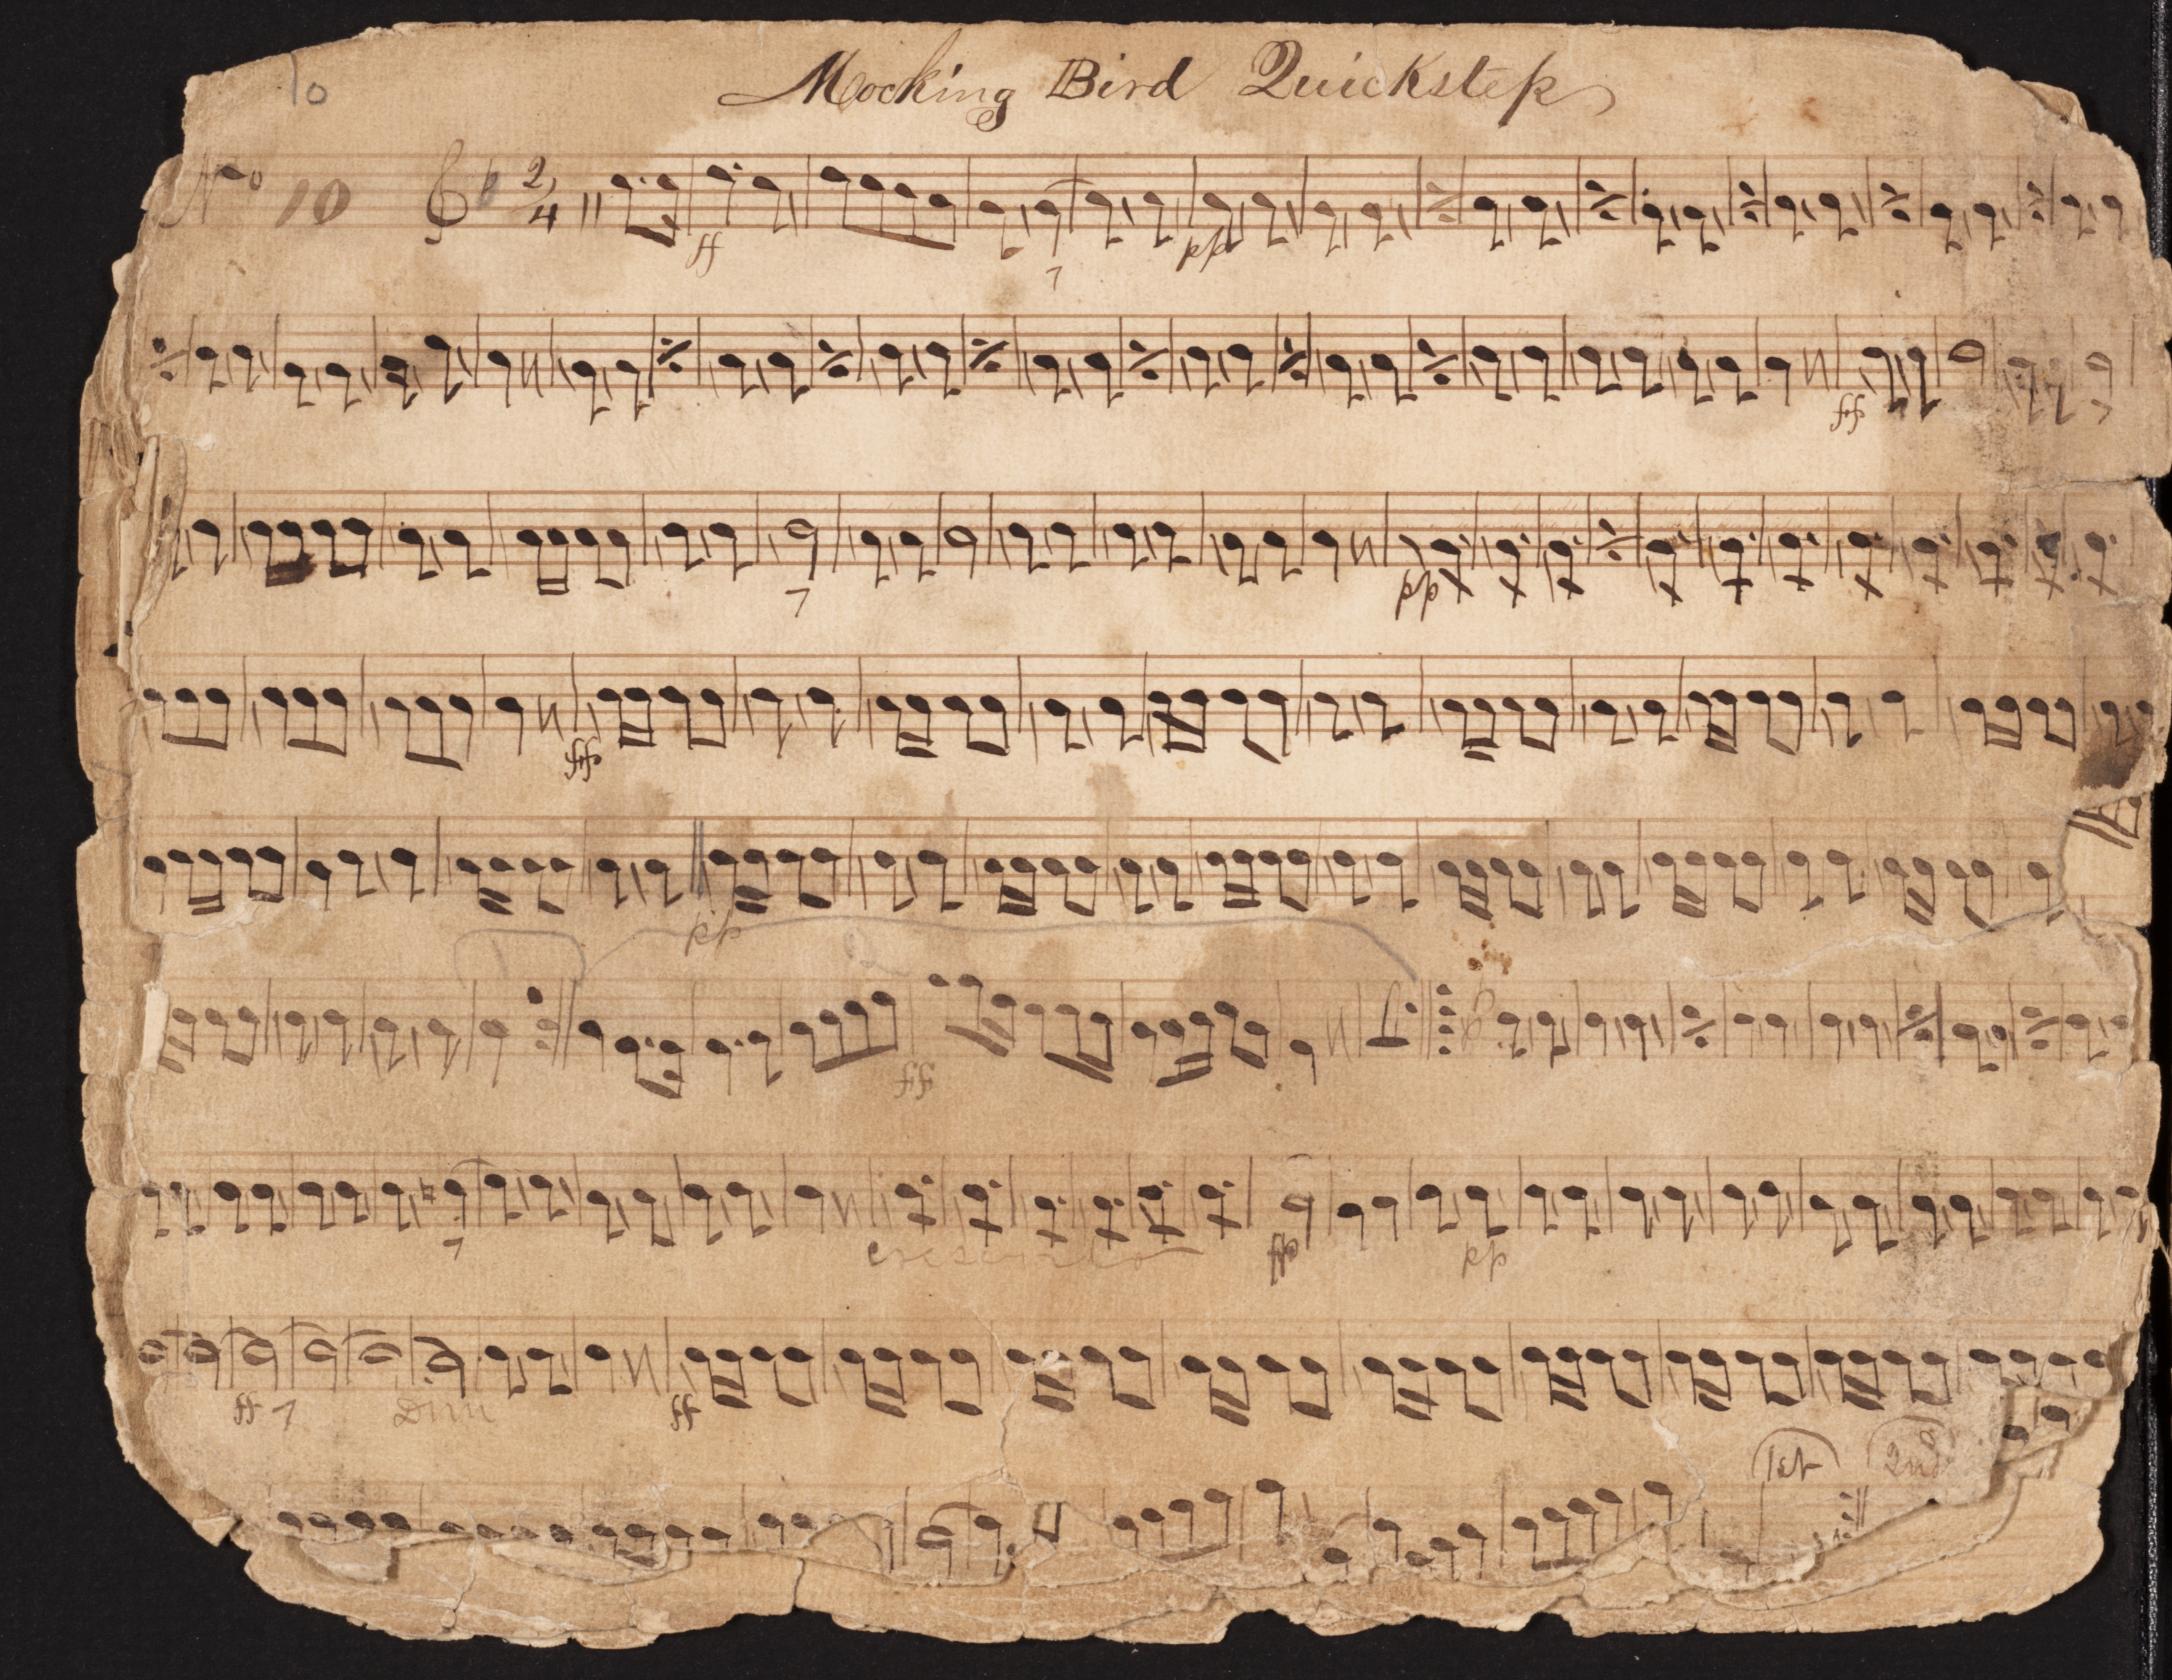 10
Mocking Bird Quickstep
No 10
2/4
ff
pp
fff
pp
fff
pp
ff
ff
pp
ff
Dim
ff
1st 2nd